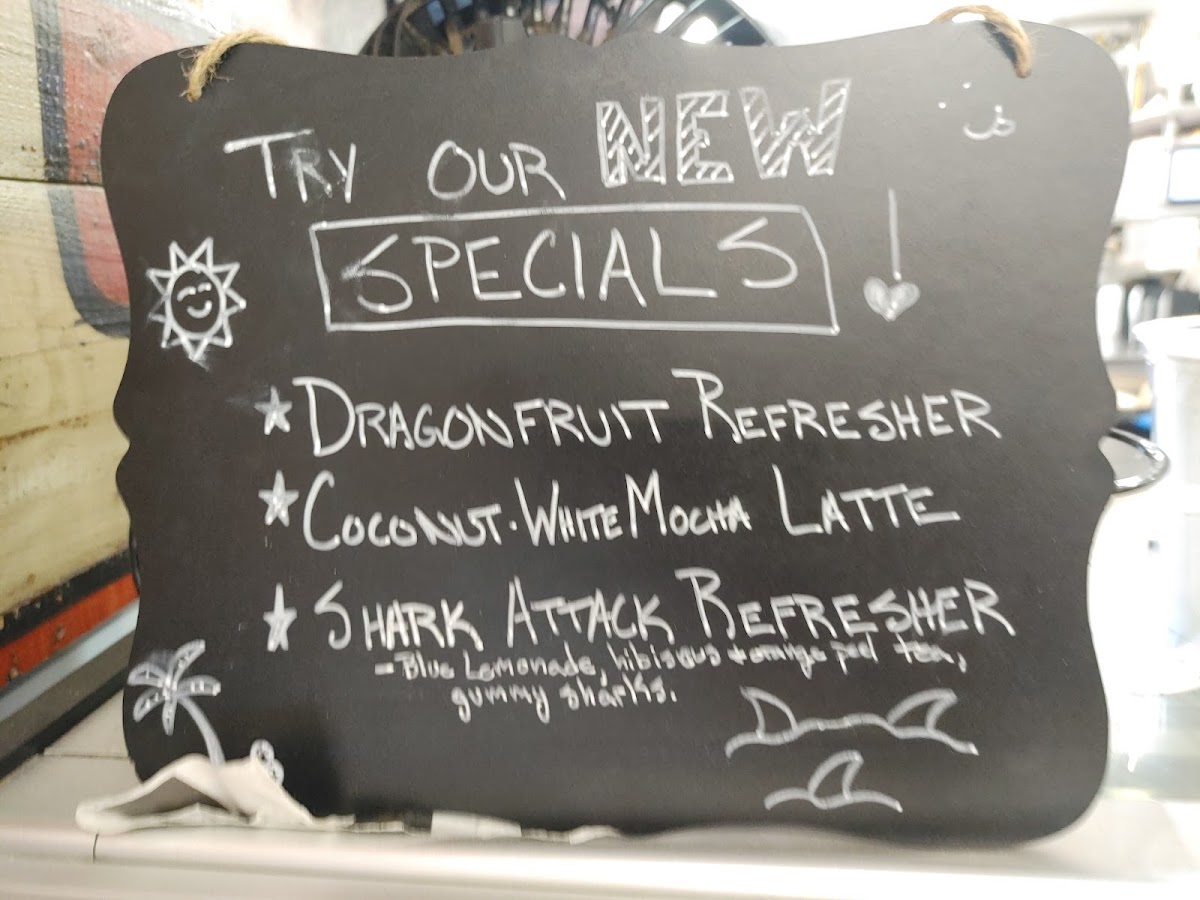 TRY OUR NEW
SPECIALS!
★ DRAGONFRUIT REFRESHER
★ COCONUT·WHITE MOCHA LATTE
★ SHARK ATTACK REFRESHER
- Blue Lemonade, hibiscus + orange peel tea,
gummy sharks.